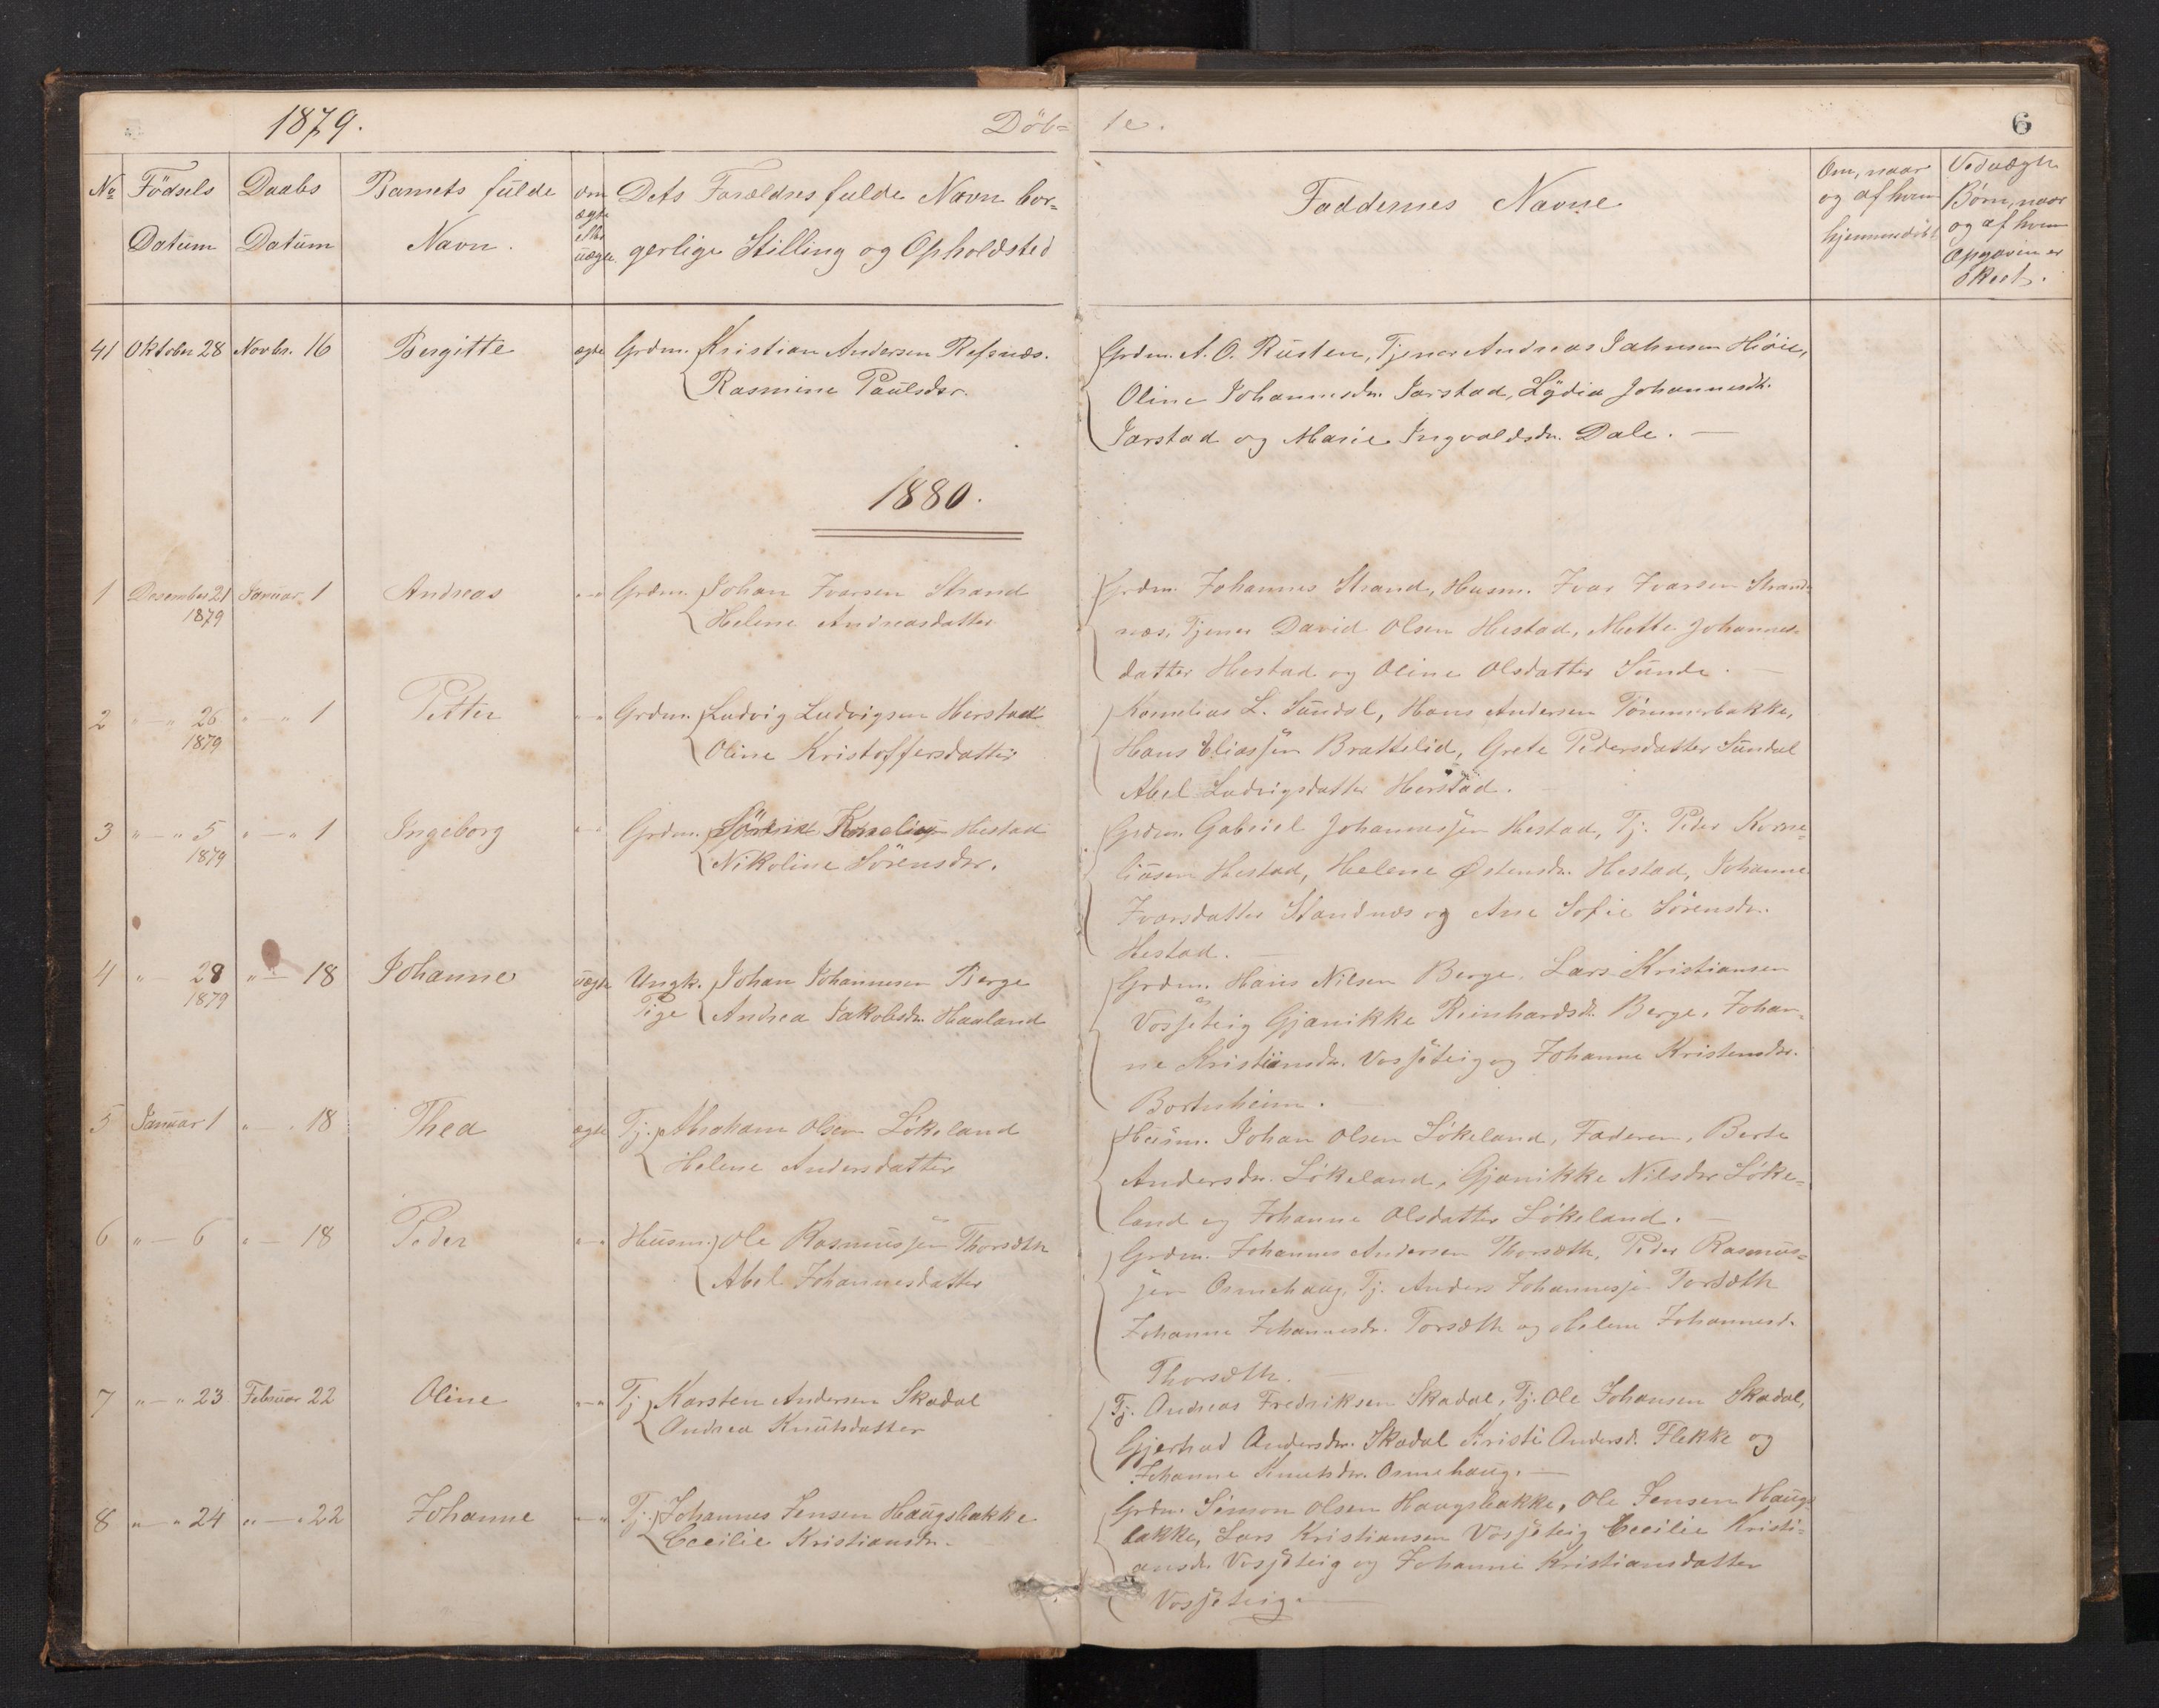 1879.
Döb= te.
6
No Födsels Datum
Daabs Datum
Barnets fulde Navn.
om ægte eller uægte
Dets Forældres fulde Navn bor=
gerlige Stilling og Opholdsted
Faddernes Navne
Om, naar og af hvem hjemmedöbt
Ved uægte Børn, naar og af hvem Opgaven er skeet.
41 Oktober 28 Novbr. 16 Bergitte ægte Grdm. Kristian Andersen Refsnæs.
Rasmine Paulsdtr.
Grdm. A. O. Rusten, Tjener Andreas Johnsen Höie,
Oline Johannesdtr. Jarstad, Lydia Johannesdtr.
Jarstad og Marie Ingvaldsdtr. Dale. —
1880.
1 Desember 21 1879 Januar 1 Andreas "—" Grdm. Johan Ivarsen Strand
Helene Andreasdatter
Grdm. Johannes Strand, Husm. Ivar Ivarsen Strand=
næs, Tjener David Olsen Hestad, Mette Johannes=
datter Hestad og Oline Olsdatter Sunde. —
2 "—" 26 1879 "—" 1 Petter "—" Grdm. Ludvig Ludvigsen Herstad
Oline Kristoffersdatter
Kornelius L. Sundal, Hans Andersen Tömmerbakke,
Hans Eliassen Brattelid, Grete Pedersdatter Sundal
Abel Ludvigsdatter Herstad.
3 "—" 5 1879 "—" 1 Ingeborg "—" Grdm. Hestad
Nikoline Sörensdtr.
Grdm. Gabriel Johannessen Hestad, Tj. Peder Korne=
liusen Hestad, Helene Østensdtr. Hestad, Johanne
Ivarsdatter Standnæs og Ane Sofie Sörensdtr.
Hestad. —
4 " 28 1879 "— 18 Johanne uægte Ungk. Johan Johannesen Berge
Pige Andrea Jakobsdtr. Haaland
Grdm. Hans Nilsen Berge, Lars Kristiansen
Vossjeteig Gjanikke Reinhardsdtr. Berge, Johan=
ne Kristiansdtr. Vossjeteig og Johanne Kristensdtr.
Bortnheim. —
5 Januar 1 "—" 18 Thea ægte Tj. Abraham Olsen Lökeland
Helene Andersdatter
Husm. Johan Olsen Lökeland, Faderen, Berte
Andersdtr. Lökeland, Gjanikke Nilsdtr Löke=
land og Johanne Olsdatter Lökeland. —
6 "— 6 "— 18 Peder "—" Husm. Ole Rasmussen Thorsæth
Abel Johannesdatter
Grdm. Johannes Andersen Thorsæth, Peder Rasmus=
sen Osmehaug, Tj. Anders Johannessen Torsæth
Johanne Johannesdtr. Torsæth og Helene Johannesd.
Thorsæth. —
7 "—" 23 Februar 22 Oline "—" Tj Karsten Andersen Skadal
Andrea Knutsdatter
Tj. Andreas Fredriksen Skadal, Tj. Ole Johansen Skadal,
Gjertrud Andersdtr. Skadal Kristi Andersd. Flekke og
Johanne Knutsdtr. Osmehaug. —
8 "—" 24 "—" 22 Johanne "—" Tj. Johannes Jensen Haugsbakke
Cecilie Kristiansdtr.
Grdm. Simon Olsen Haugsbakke, Ole Jensen Haugs=
bakke, Lars Kristiansen Vossjeteig Cecilie Kristi=
ansdtr. Vossjeteig og Johanne Kristiansdatter
Vossjeteig. —